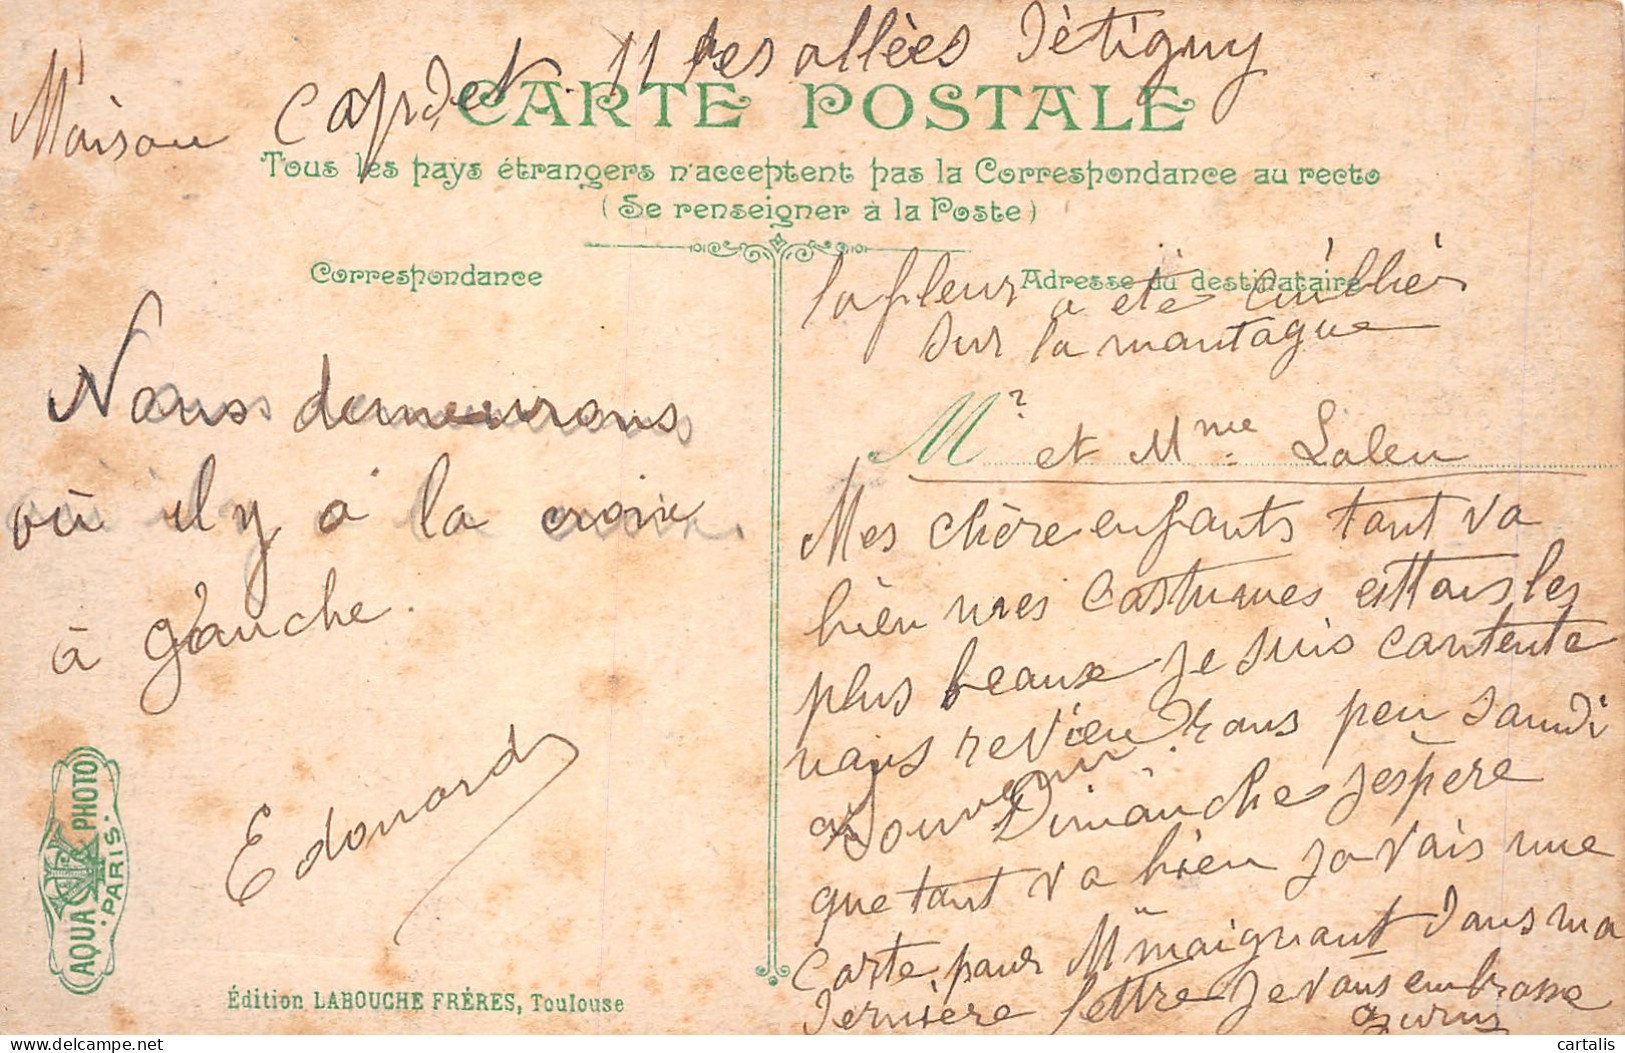 Maison Capdet. 11 des allées Détigny
CARTE POSTALE
Tous les pays étrangers n'acceptent pas la Correspondance au recto
(Se renseigner à la Poste)
Correspondance
Adresse du destinataire
Nous demeurons
où il y a la croix.
à gauche.
Edouard
AQUA PHOTO
PARIS
Édition LABOUCHE FRÈRES, Toulouse
la fleur a été
sur la montague
M et Mme Laleu
Mes chère enfants tant va
bien mes Costumes ettais les
plus beaux je suis contente
nous reviendrons peu Samdi
ou Dimanche jespère
que tant va bien javais une
carte pour Mme maignant dans ma
dernière lettre je vous embrasse
cartalis